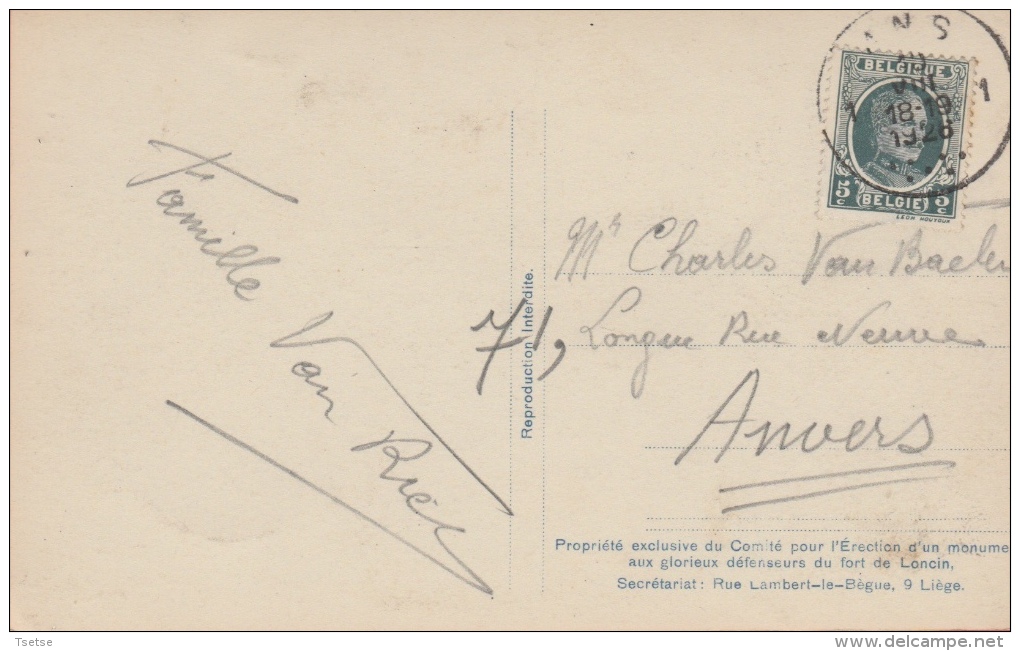 ANS
1 VIII 1
18-19
1926
BELGIQUE
5c BELGIË 5c
LEON HOUYOUX
Famille
Van Riel
Mr Charles Van Baelen
71, Longue Rue Neuve
Anvers
Reproduction Interdite.
Propriété exclusive du Comité pour l'Érection d'un monume
aux glorieux défenseurs du fort de Loncin,
Secrétariat: Rue Lambert-le-Bègue, 9 Liège.
Tsetse
www.delcampe.net